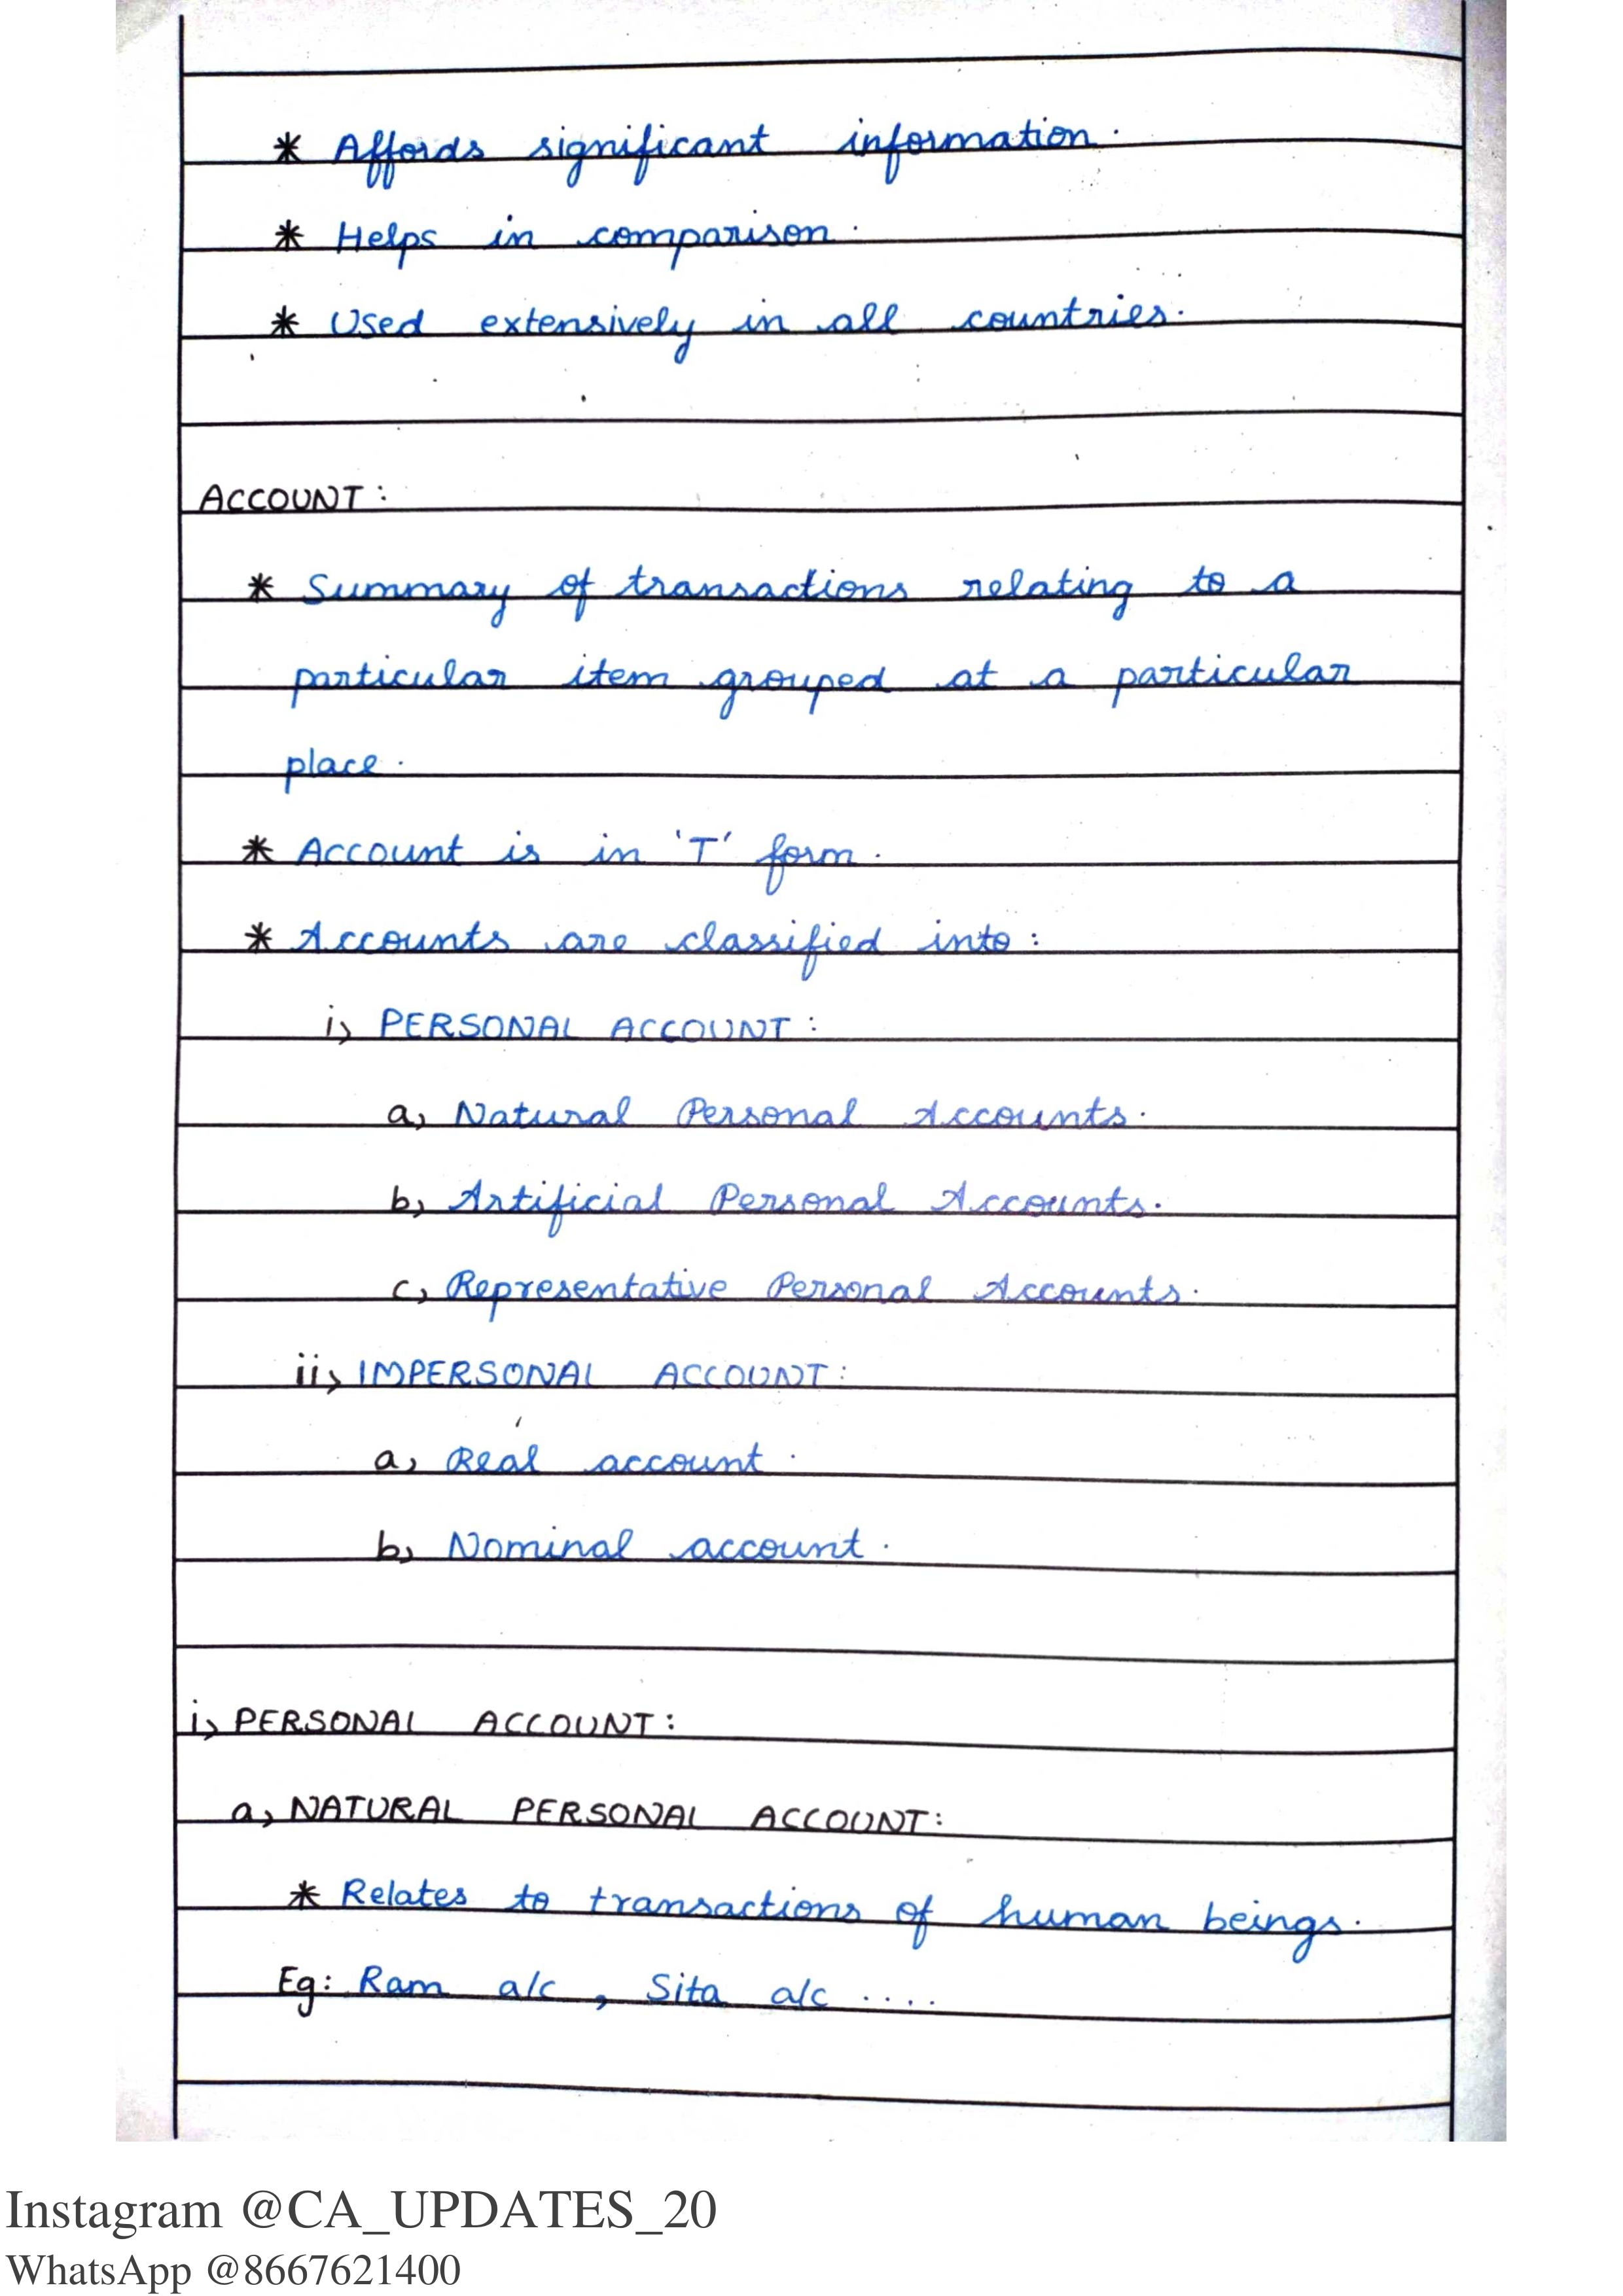 * Affords significant information.
* Helps in comparison.
* Used extensively in all countries.
ACCOUNT:
* Summary of transactions relating to a
particular item grouped at a particular
place.
* Account is in 'T' form.
* Accounts are classified into:
i, PERSONAL ACCOUNT:
a, Natural Personal Accounts.
b, Artificial Personal Accounts.
c, Representative Personal Accounts.
ii, IMPERSONAL ACCOUNT:
a, Real account.
b, Nominal account.
i, PERSONAL ACCOUNT:
a, NATURAL PERSONAL ACCOUNT:
* Relates to transactions of human beings.
Eg: Ram a/c, Sita a/c ....
Instagram @CA_UPDATES_20
WhatsApp @8667621400